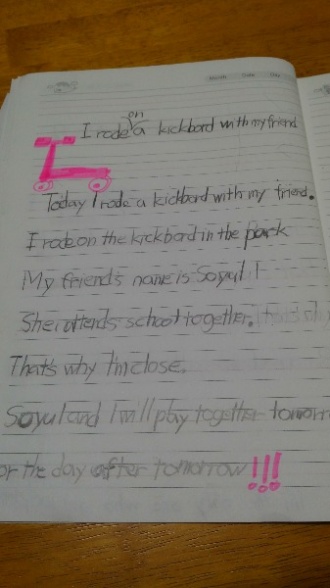 on
I rode a kickbord with my friend
Today I rode a kickbord with my friend.
I rode on the kickbord in the park
My friend's name is Soyul!
She attends school together.
That's why I'm close.
Soyul and I will play together
or the day after tomorrow!!!